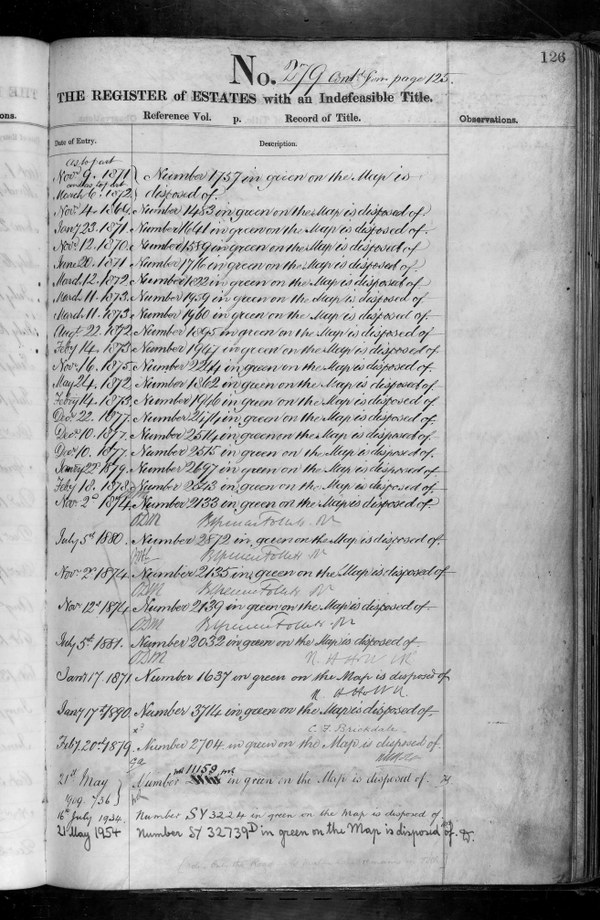 126
No. 279 Contd from page 125.
THE REGISTER of ESTATES with an Indefeasible Title.
ons.
Reference Vol. p. Record of Title.
Observations.
Date of Entry.
Description.
as to part
Novr 9. 1871 } Number 1757 in green on the Map is
and as to part
March 6. 1872 } disposed of.
Novr 4. 1869. Number 1453 in green on the Map is disposed of
Jany 23. 1871. Number 1641 in green on the Map is disposed of.
Novr 12. 1870. Number 1589 in green on the Map is disposed of.
June 20. 1871 Number 1716 in green on the Map is disposed of.
March 12. 1872. Number 1822 in green on the Map is disposed of.
March 11. 1873. Number 1959 in green on the Map is disposed of
March 11. 1873. Number 1960 in green on the Map is disposed of.
Augt 22. 1872. Number 1895 in green on the Map is disposed of
Feby 14. 1873. Number 1947 in green on the Map is disposed of.
Novr 16. 1875. Number 2244 in green on the Map is disposed of.
May 24. 1872. Number 1862 in green on the Map is disposed of
Febry 14. 1873. Number 1946 in green on the Map is disposed of.
Decr 22. 1877. Number in green on the Map is disposed of.
Decr 10. 1877. Number 2514 in green on the Map is disposed of.
Decr 10. 1877. Number 2515 in green on the Map is disposed of.
January 22d 1879. Number 2697 in green on the Map is disposed of.
Feby 18. 1878. Number in green on the Map is disposed of.
Novr 2d 1874. Number 2133 in green on the Map is disposed of.
July 5th 1880. Number 2872 in green on the Map is disposed of.
Novr 2d 1874. Number 2135 in green on the Map is disposed of.
Novr 12th 1874. Number 2139 in green on the Map is disposed of.
July 5th 1881. Number 2032 in green on the Map is disposed of.
Jany 17. 1871 Number 1637 in green on the Map is disposed of
Jany 17th 1890. Number 3714 in green on the Map is disposed of.
C. F. Brickdale
Feby 20th 1879. Number 2704 in green on the Map is disposed of.
21st May } Number 11159 in green on the Map is disposed of.
1909. 736 }
16th July 1934. Number SY 3224 in green on the Map is disposed of
21 May 1954 Number SY 32739D in green on the Map is disposed of.